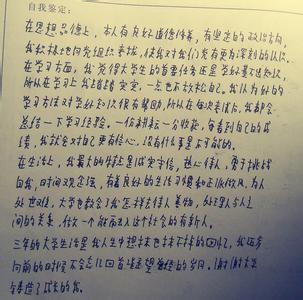 自我鉴定:
在思想品德上，本人有良好道德修养，有坚定的政治方向，
我积极地向党组织靠拢，使我对我们党有更为深刻的认识。
在学习方面，我觉得大学生的首要任务还是学好文化知识，
所以在学习上我踏踏实实，一点也不放松。我认为好的
学习方法对学好知识很有帮助，所以在每次考试后，我都会
总结一下学习经验。一份耕耘一分收获，每看到自己的成
绩，我就会对自己更有信心，没有什么事是不可能的。
在生活上，我最大的特点是诚实守信，热心待人，勇于挑战
自我，时间观念强，有着良好的生活习惯和正派作风。为人
处世
大学也教会了我怎样去待人善物，处理人与人之
间的关系，做一个能融入这个社会的有新人。
三年的大学生活是我人生中想抹也抹不掉的回忆，我在
向前的时候不会忘记回首
的岁月。谢谢大学
了成长的我。